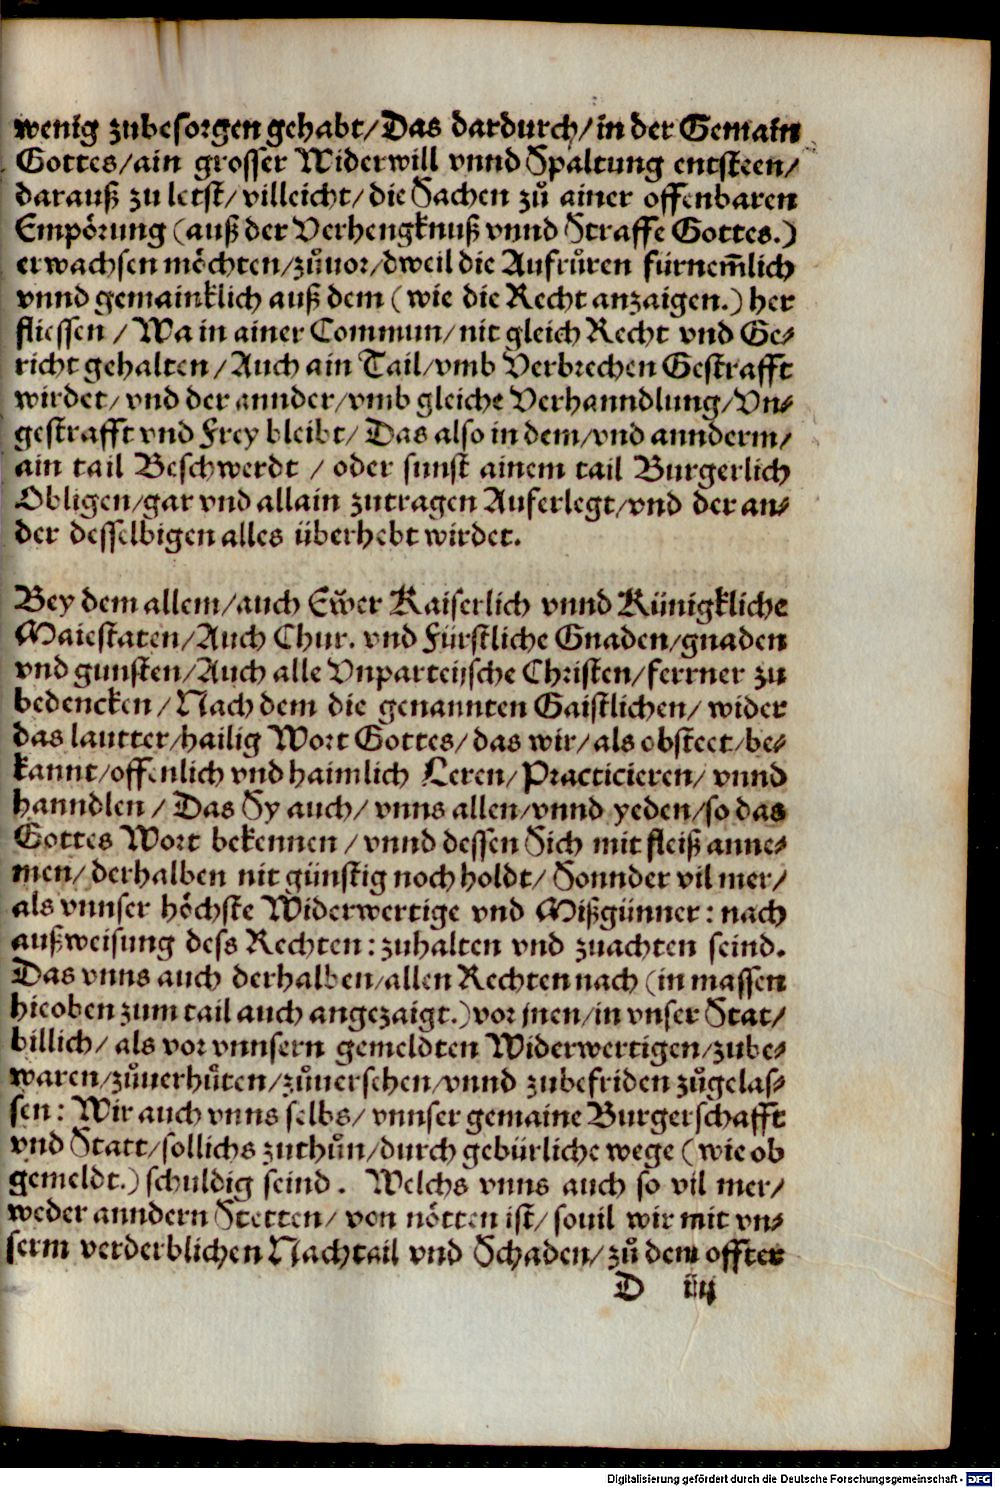 wenig zubesorgen gehabt/Das dardurch/in der Gemain
Gottes/ain grosser Widerwill vnnd Spaltung entsteen/
darauß zu letst/villeicht/die Sachen zů ainer offenbaren
Empörung (auß der Verhengknuß vnnd Straffe Gottes.)
erwachsen möchten/zůuor/dweil die Aufrůren fürnem̃lich
vnnd gemainklich auß dem (wie die Recht anzaigen.) her
fliessen / Wa in ainer Commun/nit gleich Recht vnd Ge⸗
richt gehalten/Auch ain Tail/vmb Verbrechen Gestrafft
wirdet/vnd der annder/vmb gleiche Verhanndlung/Vn⸗
gestrafft vnd Frey bleibt/ Das also in dem/vnd annderm/
ain tail Beschwerdt / oder sunst ainem tail Burgerlich
Obligen/gar vnd allain zutragen Auferlegt/vnd der an⸗
der desselbigen alles überhebt wirdet.
Bey dem allem/auch Ew̃er Kaiserlich vnnd Künigkliche
Maiestaten/Auch Chur. vnd Fürstliche Gnaden/gnaden
vnd gunsten/Auch alle Vnparteijsche Christen/ferrner zu
bedencken/Nach dem die genannten Gaistlichen/ wider
das lautter/hailig Wort Gottes/das wir/als obsteet/be⸗
kannt/offenlich vnd haimlich Leren/Practicieren/ vnnd
hanndlen / Das Sy auch/ vnns allen/vnnd yeden/so das
Gottes Wort bekennen / vnnd dessen Sich mit fleiß anne⸗
men/derhalben nit günstig noch holdt/ Sonnder vil mer/
als vnnser höchste Widerwertige vnd Mißgünner: nach
außweisung dess Rechten: zuhalten vnd zuachten seind.
Das vnns auch derhalben/allen Rechten nach (in massen
hieoben zum tail auch angezaigt.) vor jnen/in vnser Stat/
billich/ als vor vnnsern gemeldten Widerwertigen/zube⸗
waren/zůuerhůten/zůuersehen/vnnd zubefriden zůgelas⸗
sen: Wir auch vnns selbs/ vnnser gemaine Burgerschafft
vnd Statt/sollichs zuthůn/durch gebürliche wege (wie ob
gemeldt.) schuldig seind. Welchs vnns auch so vil mer/
weder anndern Stetten/ von nötten ist/ souil wir mit vn⸗
serm verderblichen Nachtail vnd Schaden/zů dem offter
D iiij
Digitalisierung gefördert durch die Deutsche Forschungsgemeinschaft - DFG